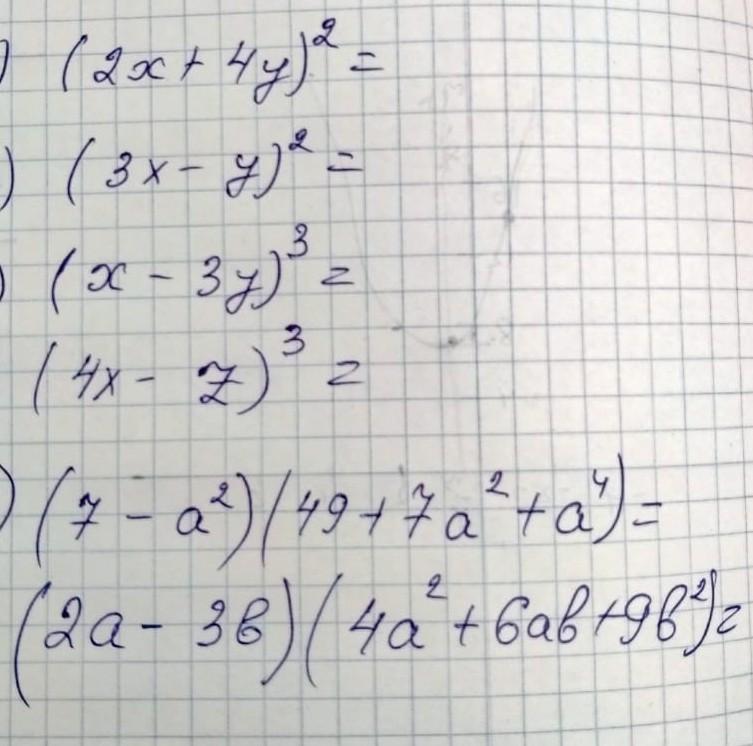 ) (2x + 4y)² =
) (3x - y)² =
) (x - 3y)³ =
(4x - z)³ =
) (7 - a²)(49 + 7a² + a⁴) =
(2a - 3в)(4a² + 6aв + 9в²) =